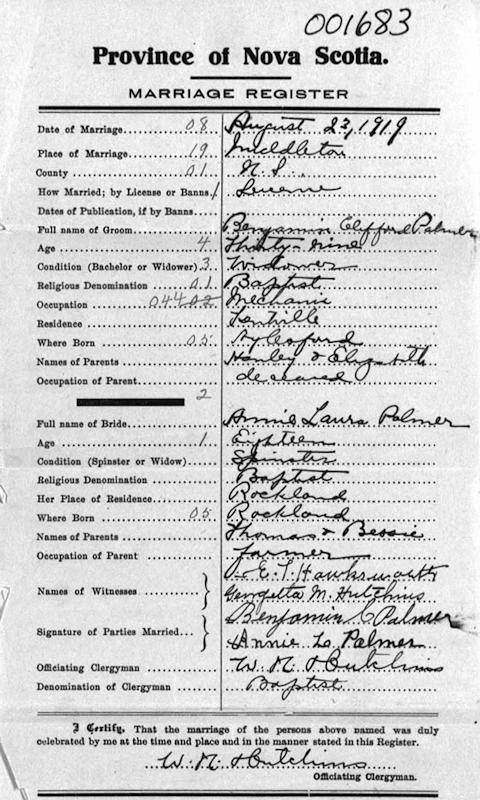 001683
Province of Nova Scotia.
MARRIAGE REGISTER
Date of Marriage 08 August 23, 1919
Place of Marriage 19 Middleton
County 01 N. S.
How Married; by License or Banns License
Dates of Publication, if by Banns
Full name of Groom Benjamin Clifford Palmer
Age 4 Thirty-nine
Condition (Bachelor or Widower) 3 Widower
Religious Denomination 01 Baptist
Occupation 04402 Mechanic
Residence Kentville
Where Born 05 Aylesford
Names of Parents Hanley & Elizabeth
Occupation of Parent deceased
2
Full name of Bride Annie Laura Palmer
Age 1 Eighteen
Condition (Spinster or Widow) Spinster
Religious Denomination Baptist
Her Place of Residence Rockland
Where Born 05 Rockland
Names of Parents Thomas & Bessie
Occupation of Parent farmer
E. T. Hawksworth
Names of Witnesses Georgetta M. Hutchins
Benjamin C Palmer
Signature of Parties Married Annie L. Palmer
Officiating Clergyman W. M. Hutchins
Denomination of Clergyman Baptist
I Certify, That the marriage of the persons above named was duly
celebrated by me at the time and place and in the manner stated in this Register.
W. M. Hutchins
Officiating Clergyman.